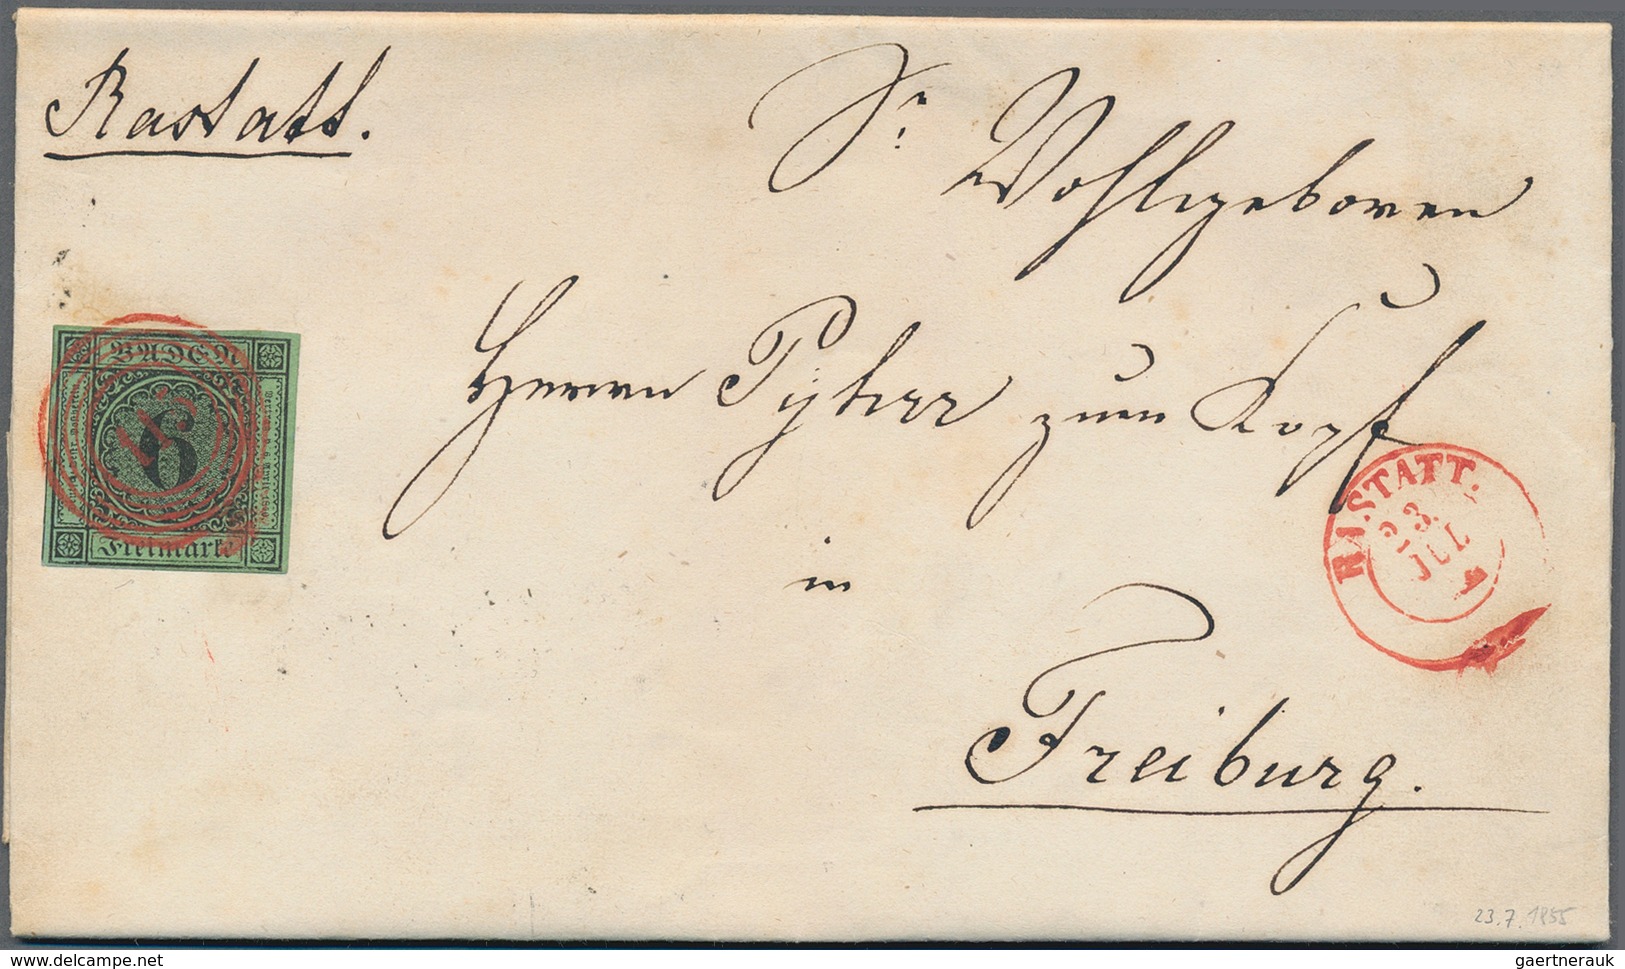 Rastatt.
Sr. Wohlgeboren
Herrn Pyhrr zum Kopf
in
Freiburg.
BADEN
6
115
Freimarke
RASTATT.
23.
JUL
23.7.1855
www.delcampe.net
gaertnerauk